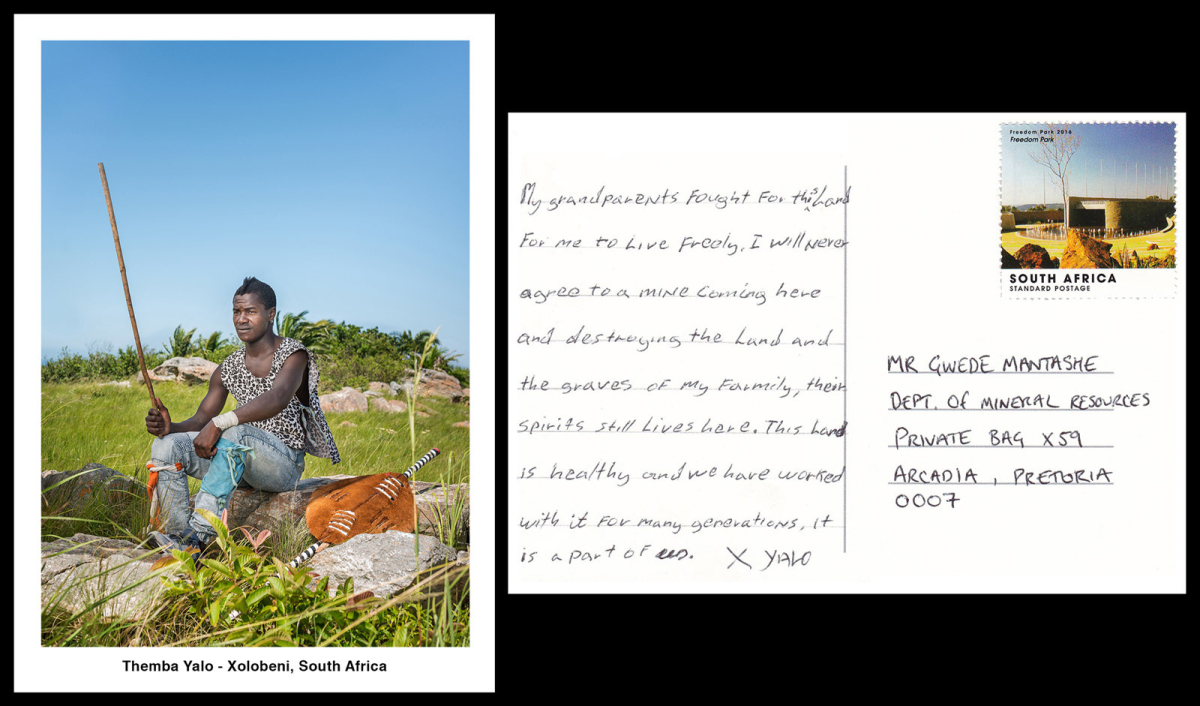 Themba Yalo - Xolobeni, South Africa
My grandparents fought for this Land
for me to Live freely. I will Never
agree to a mine coming here
and destroying the Land and
the graves of my Farmily, their
spirits still Lives here. This Land
is healthy and we have worked
with it for many generations, it
is a part of us. X YALO
Freedom Park 2016
Freedom Park
SOUTH AFRICA
STANDARD POSTAGE
MR GWEDE MANTASHE
DEPT. OF MINERAL RESOURCES
PRIVATE BAG X59
ARCADIA, PRETORIA
0007